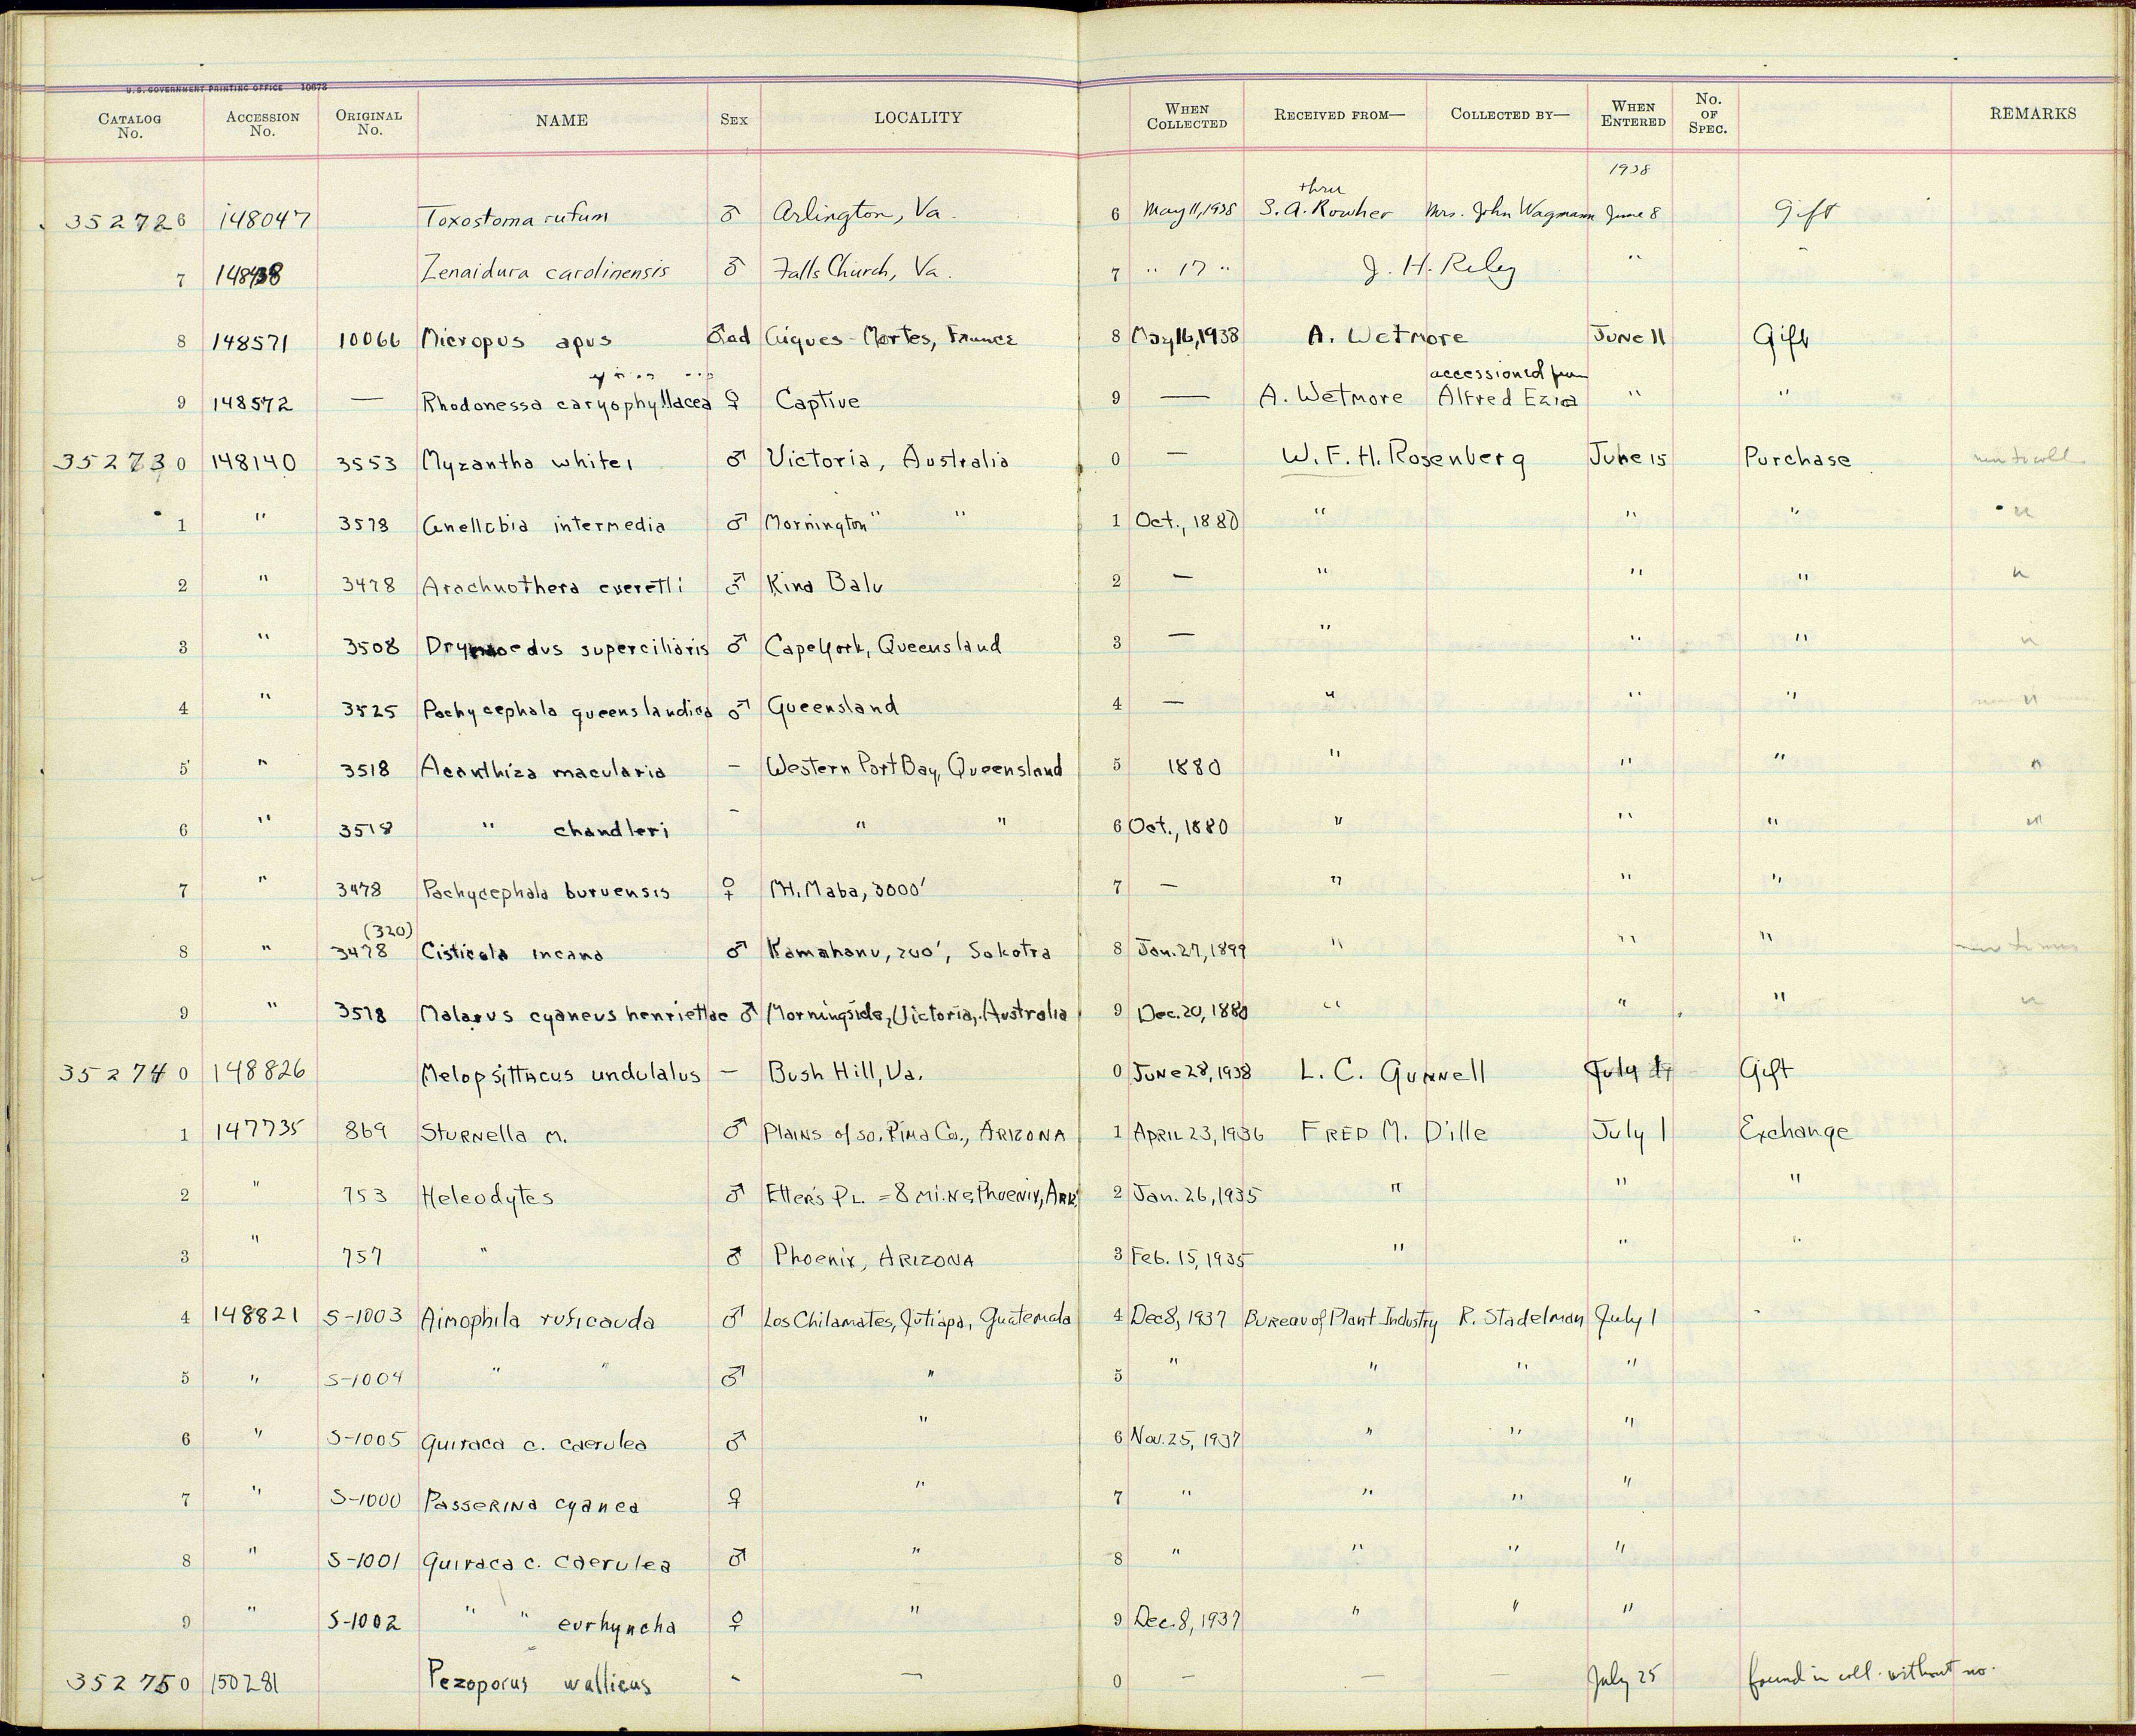 U.S. GOVERNMENT PRINTING OFFICE 10673
CATALOG No. ACCESSION No. ORIGINAL No. NAME SEX LOCALITY WHEN COLLECTED RECEIVED FROM— COLLECTED BY— WHEN ENTERED No. OF SPEC. REMARKS
1938
thru
352726 148047 Toxostoma rufum ♂ Arlington, Va. 6 May 11, 1938 S. A. Rowher Mrs. John Wagmann June 8 Gift
7 148438 Zenaidura carolinensis ♂ Falls Church, Va. 7 " 17 " J. H. Riley " "
8 148571 10066 Micropus apus ♂ad Aigues-Mortes, France 8 May 16, 1938 A. Wetmore June 11 Gift
accessioned from
9 148572 — Rhodonessa caryophyllacea ♀ Captive 9 — A. Wetmore Alfred Ezra " "
352730 148140 3553 Myzantha whitei ♂ Victoria, Australia 0 — W. F. H. Rosenberg June 15 Purchase new to coll
1 " 3578 Anellobia intermedia ♂ Mornington " " 1 Oct., 1880 " " " "
2 " 3478 Arachnothera everetti ♂ Kina Balu 2 — " " " "
3 " 3508 Drymoedus superciliaris ♂ Cape York, Queensland 3 — " " " "
4 " 3525 Pachycephala queenslandica ♂ Queensland 4 — " " " "
5 " 3518 Acanthiza macularia – Western Port Bay, Queensland 5 1880 " " " "
6 " 3518 " chandleri – " " 6 Oct., 1880 " " " "
7 " 3478 Pachycephala buruensis ♀ Mt. Maba, 3000' 7 — " " "
(320)
8 " 3478 Cisticola incana ♂ Kamahanu, 200', Sokotra 8 Jan. 27, 1899 " " "
9 " 3578 Malarus cyaneus henriettae ♂ Morningside, Victoria, Australia 9 Dec. 20, 1880 " " " "
352740 148826 Melopsittacus undulalus — Bush Hill, Va. 0 June 28, 1938 L. C. Gunnell July Gift
1 147735 869 Sturnella m. ♂ Plains of so. Pima Co., Arizona 1 April 23, 1936 Fred M. Dille July 1 Exchange
2 " 753 Heleodytes ♂ Etter's Pl. = 8 mi. NE Phoenix, Ariz. 2 Jan. 26, 1935 " " "
3 " 757 " ♂ Phoenix, Arizona 3 Feb. 15, 1935 " " "
4 148821 S-1003 Aimophila ruficauda ♂ Los Chilamates, Jutiapa, Guatemala 4 Dec 8, 1937 Bureau of Plant Industry R. Stadelman July 1 -
5 " S-1004 " " ♂ " 5 " " " "
6 " S-1005 Guiraca c. caerulea ♂ " 6 Nov. 25, 1937 " " "
7 " S-1000 Passerina cyanea ♀ " 7 " " " "
8 " S-1001 Guiraca c. caerulea ♂ " 8 " " " "
9 " S-1002 " " eurhyncha ♀ " 9 Dec. 8, 1937 " " "
352750 150281 Pezoporus wallicus - — 0 — — — July 25 found in coll. without no.